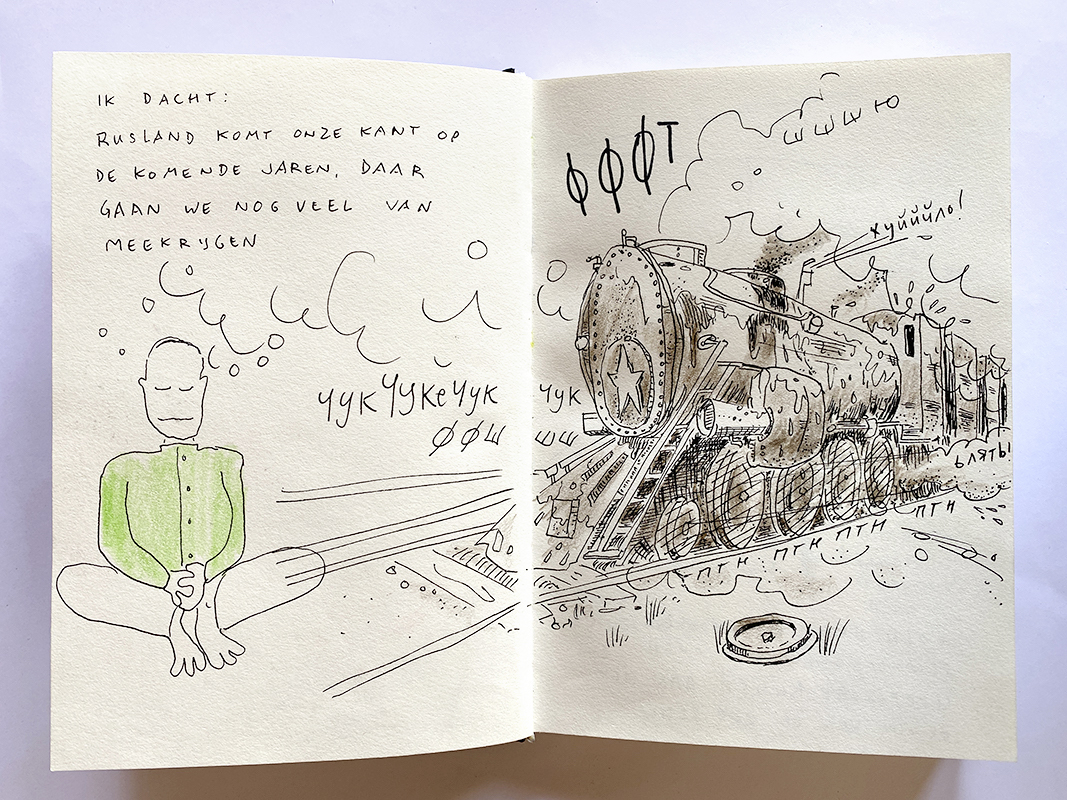 IK DACHT:
RUSLAND KOMT ONZE KANT OP
DE KOMENDE JAREN, DAAR
GAAN WE NOG VEEL VAN
MEEKRIJGEN
ЧУК ЧУКЕЧУК
ФФШ
ФФФТ
ШШШЮ
хуйййло!
ЧУК
ШШ
БЛЯТЬ!
ПТН ПТН ПТН ПТН